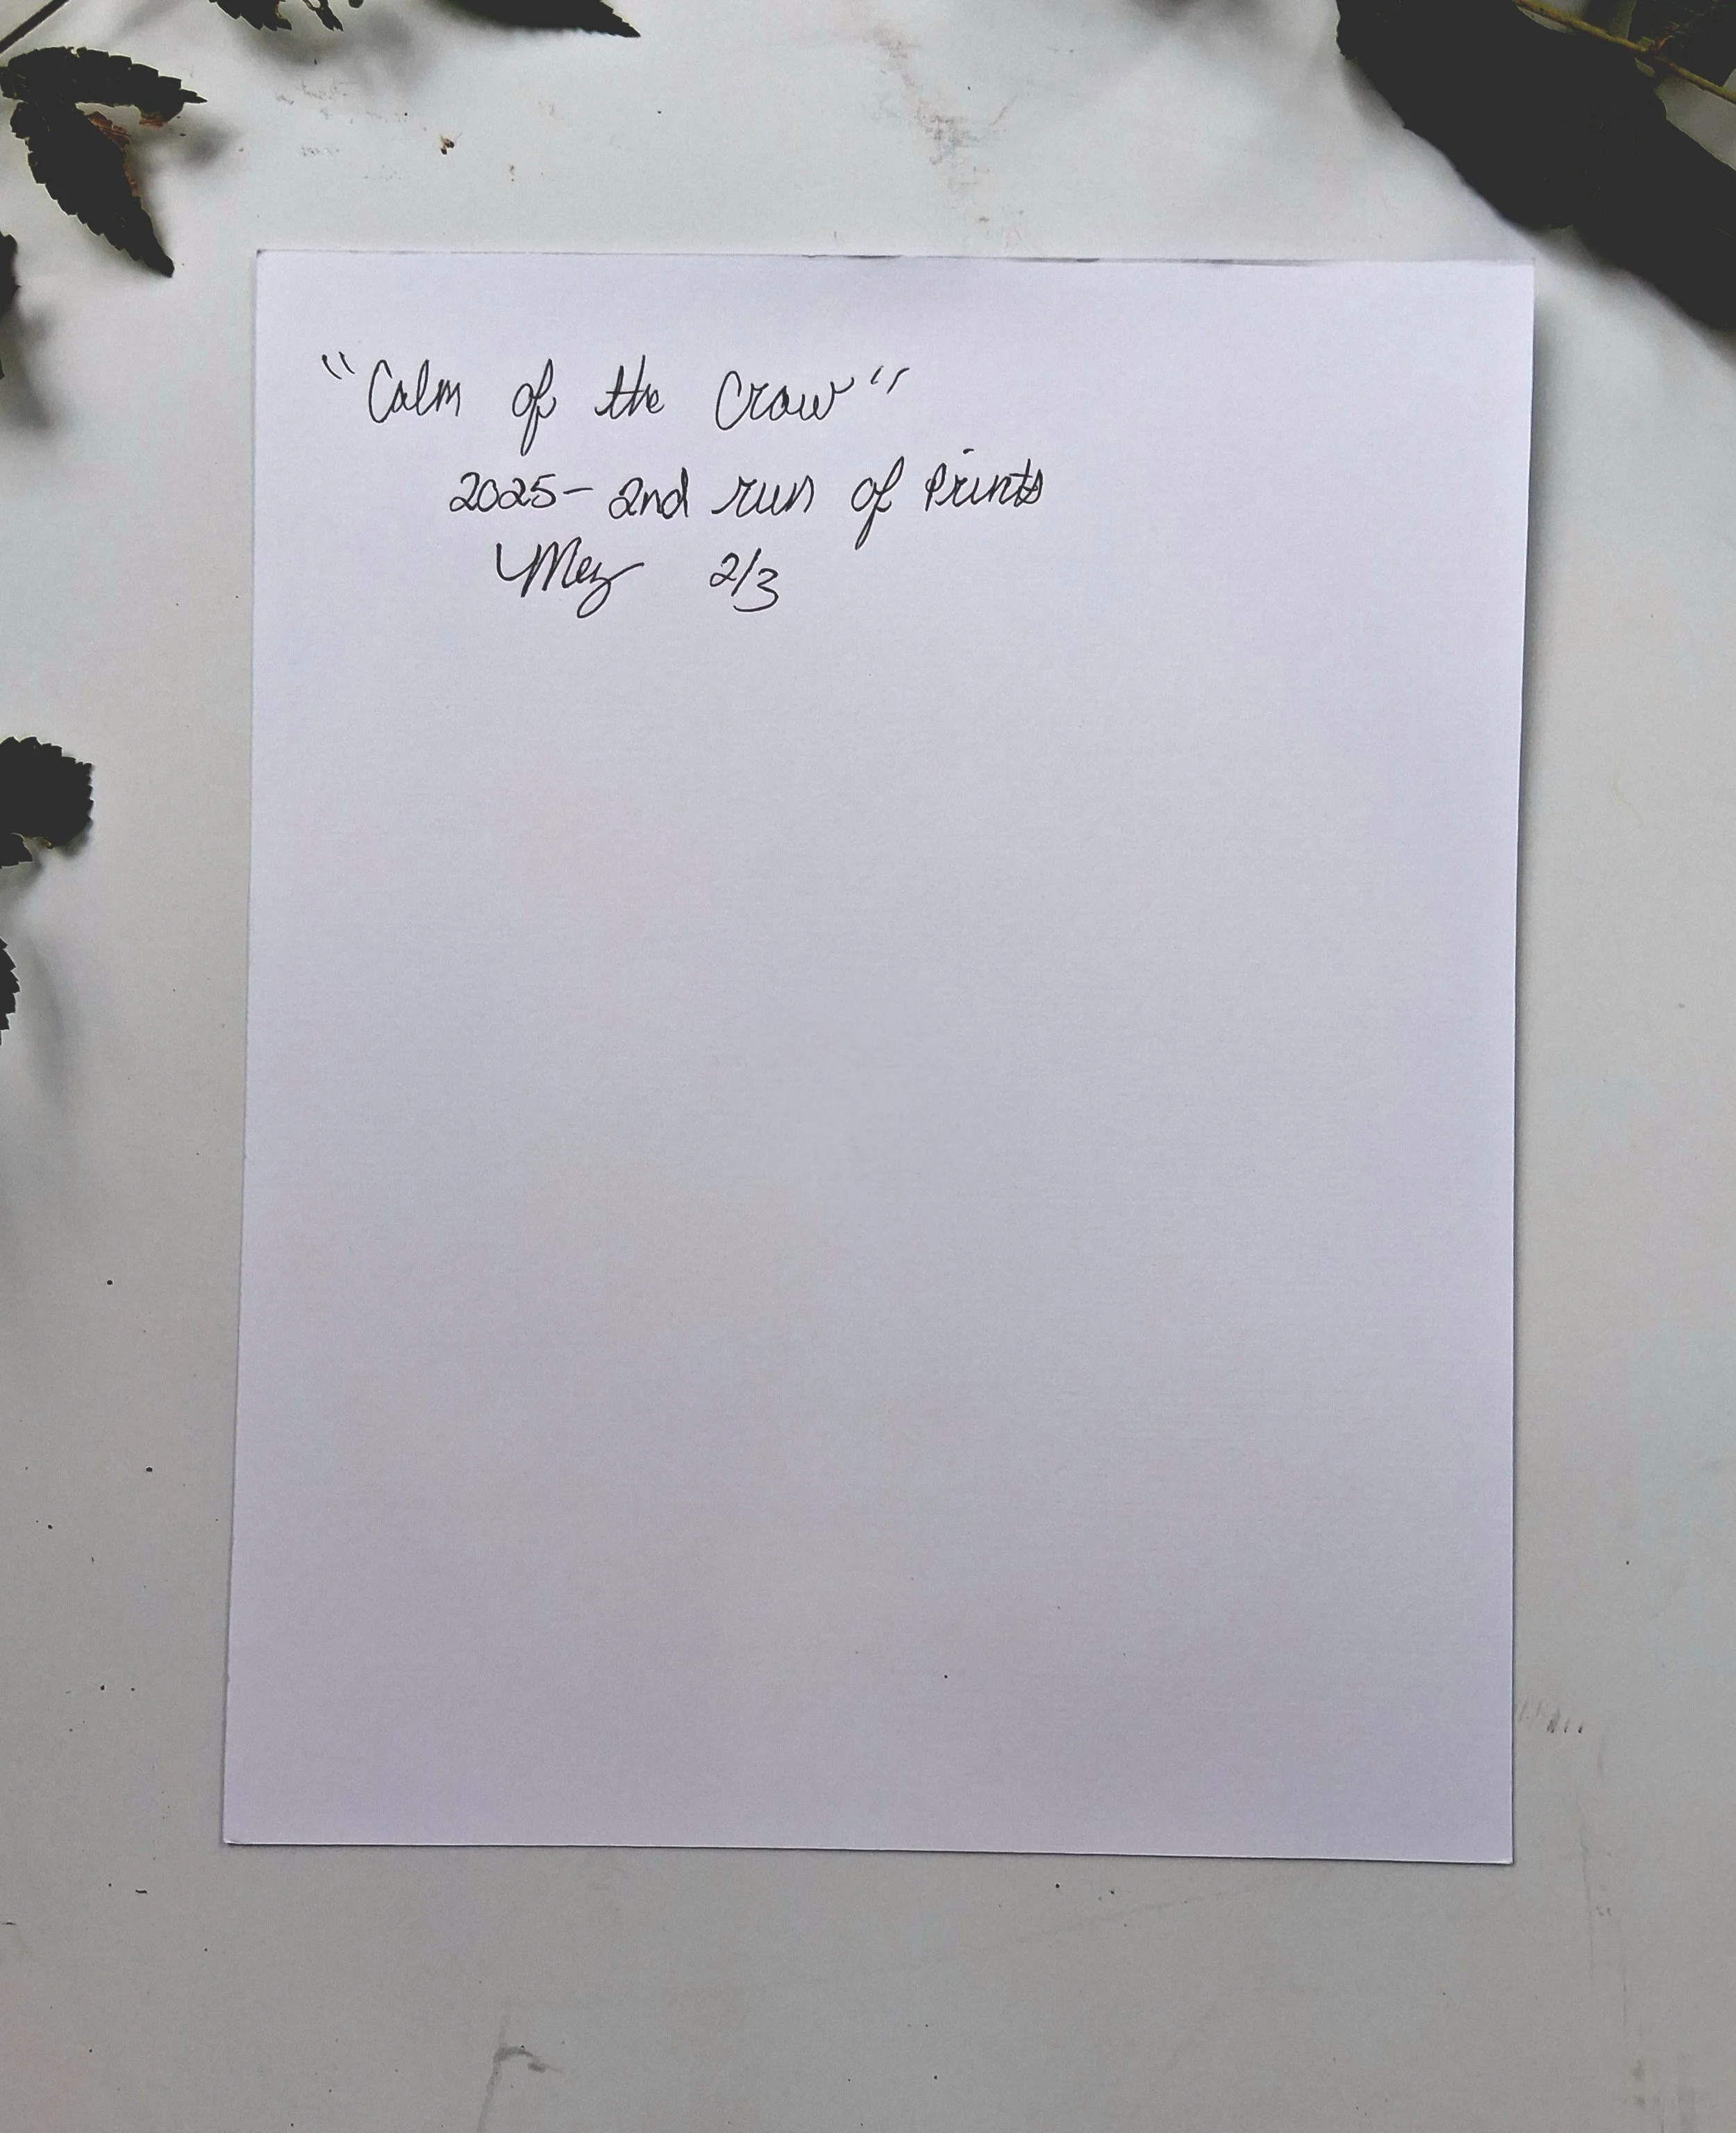 "Calm of the Crow"
2025- 2nd run of Prints
Mez 2/3